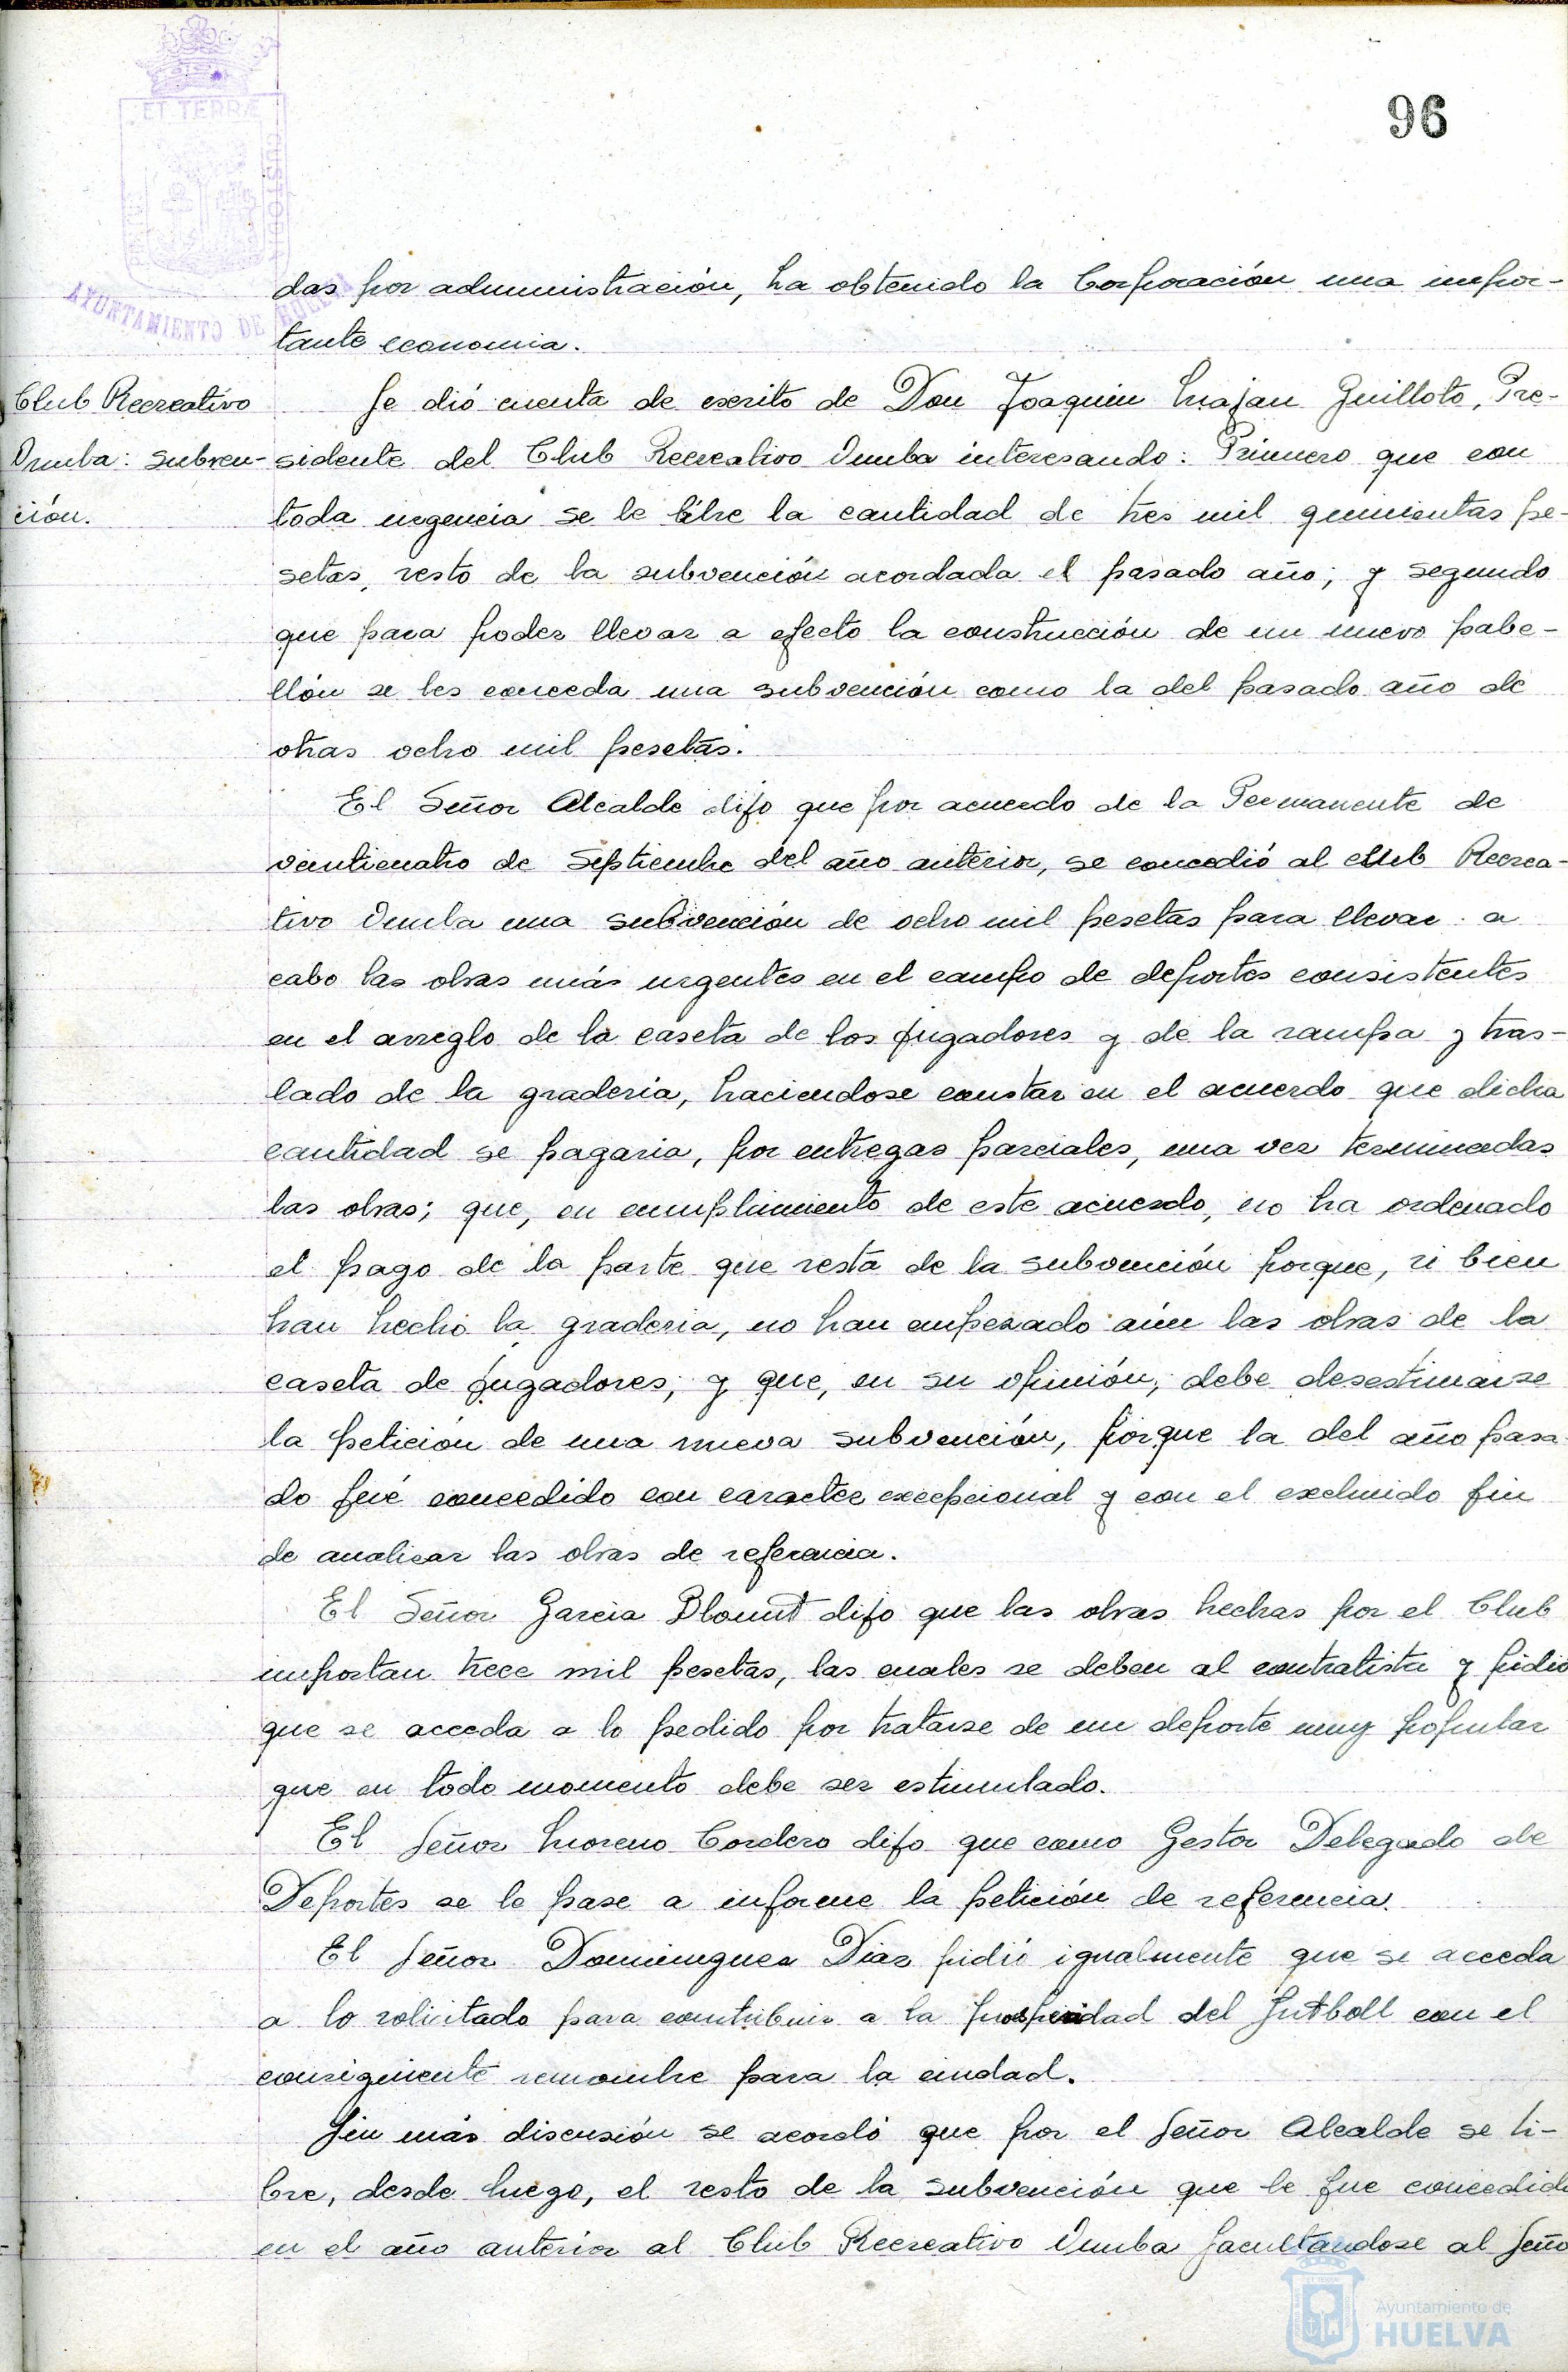 96
ET TERRÆ
CUSTODIA
AYUNTAMIENTO DE HUELVA
das por administración, ha obtenido la Corporación una impor-
tante economia.
Club Recreativo
Onuba: subven-
ción.
Se dió cuenta de escrito de Don Joaquin Guilloto, Pre-
sidente del Club Recreativo Onuba interesando: Primero que con
toda urgencia se le libre la cantidad de tres mil quinientas pe-
setas, resto de la subvención acordada el pasado año; y segundo
que para poder llevar a efecto la construcción de un nuevo pabe-
llón se les conceda una subvención como la del pasado año de
otras ocho mil pesetas.
El Señor Alcalde dijo que por acuerdo de la Permanente de
veinticuatro de Septiembre del año anterior, se concedió al club Recrea-
tivo Onuba una subvención de ocho mil pesetas para llevar a
cabo las obras más urgentes en el campo de deportes consistentes
en el arreglo de la caseta de los jugadores y de la rampa y tras-
lado de la graderia, haciendose constar en el acuerdo que dicha
cantidad se pagaria, por entregas parciales, una vez terminadas
las obras; que, en cumplimiento de este acuerdo, no ha ordenado
el pago de la parte que resta de la subvención porque, si bien
han hecho la graderia, no han empezado aún las obras de la
caseta de jugadores; y que, en su opinión, debe desestimarse
la petición de una nueva subvención, porque la del año pasa
do fué concedido con caracter excepcional y con el fin
de las obras de referencia.
El Señor Garcia Blount dijo que las obras hechas por el Club
importan trece mil pesetas, las cuales se deben al contratista y pidió
que se acceda a lo pedido por tratarse de un deporte muy popular
que en todo momento debe ser estimulado.
El Señor Moreno Cordero dijo que como Gestor Delegado de
Deportes se le pase a informe la petición de referencia.
El Señor Dominguez Diaz pidió igualmente que se acceda
a lo solicitado para contribuir a la prosperidad del futboll con el
consiguiente renombre para la ciudad.
Sin más discusión se acordó que por el Señor Alcalde se li-
bre, desde luego, el resto de la subvención que le fue concedida
en el año anterior al Club Recreativo Onuba facultandose al Seño
Ayuntamiento de
HUELVA